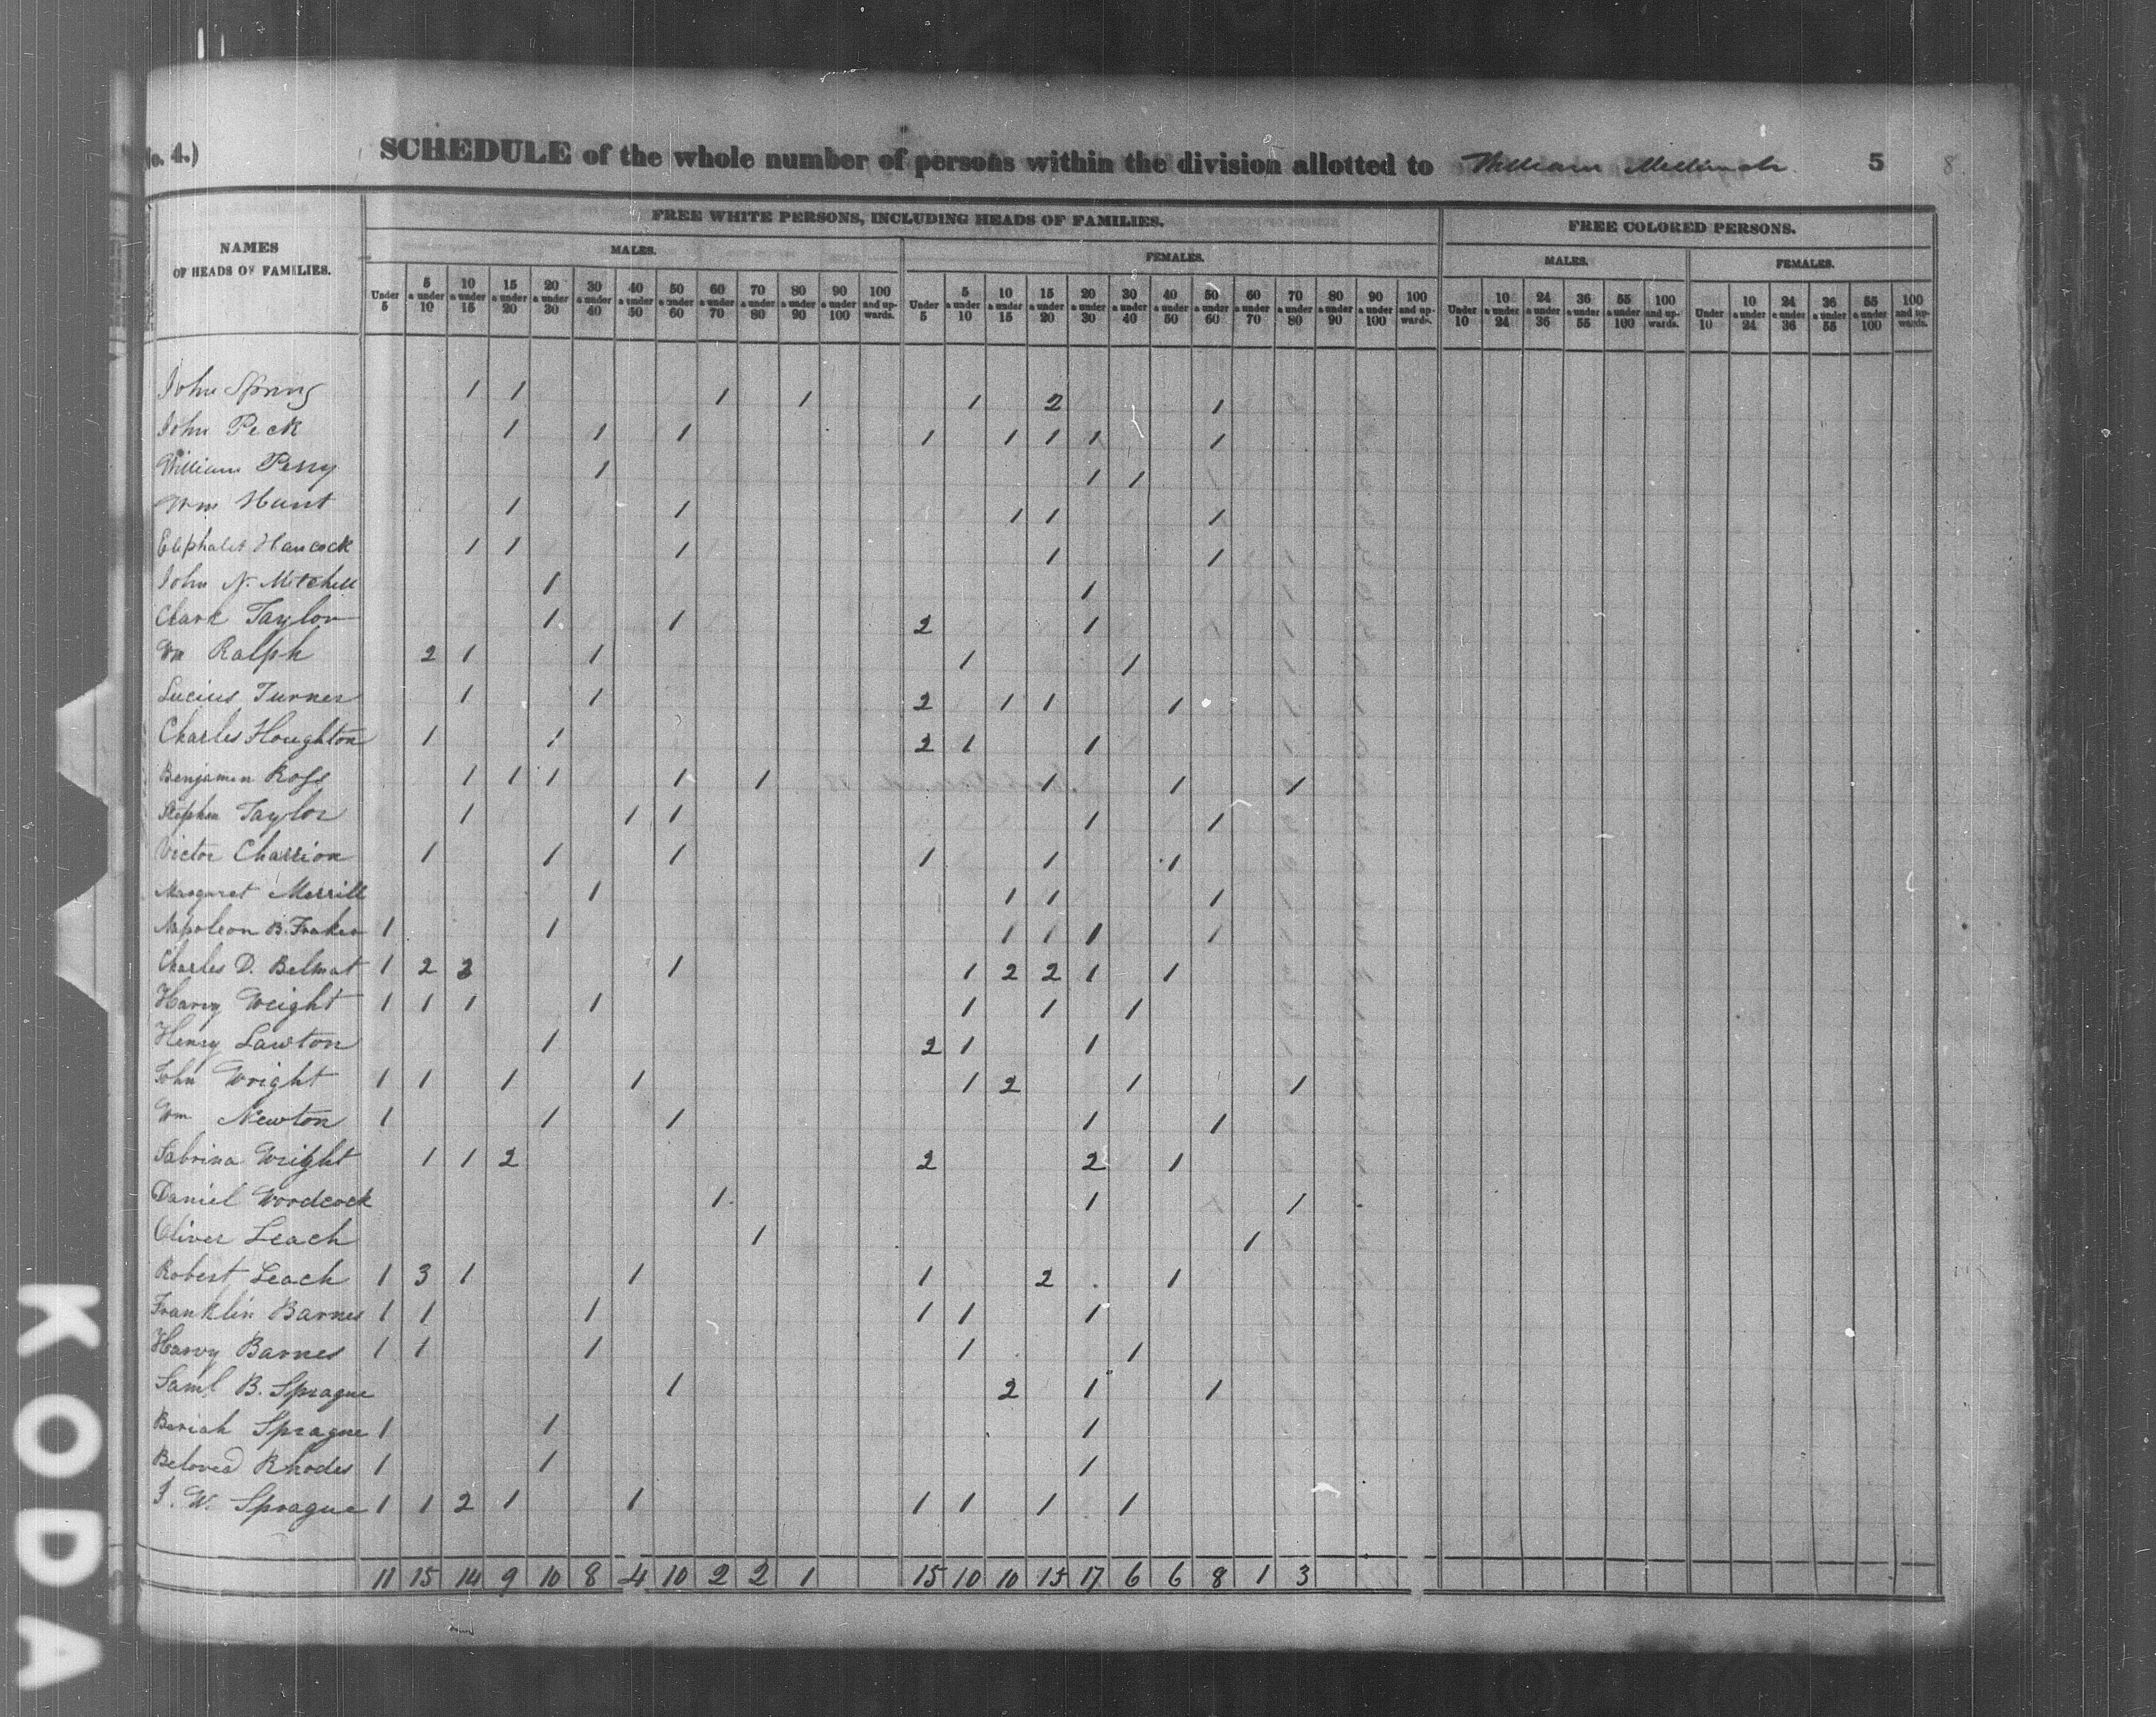 o. 4.) SCHEDULE of the whole number of persons within the division allotted to William 5 8
NAMES OF HEADS OF FAMILIES. FREE WHITE PERSONS, INCLUDING HEADS OF FAMILIES. FREE COLORED PERSONS.
MALES. FEMALES. MALES. FEMALES.
Under 5 5 a under 10 10 a under 15 15 a under 20 20 a under 30 30 a under 40 40 a under 50 50 a under 60 60 a under 70 70 a under 80 80 a under 90 90 a under 100 100 and upwards. Under 5 5 a under 10 10 a under 15 15 a under 20 20 a under 30 30 a under 40 40 a under 50 50 a under 60 60 a under 70 70 a under 80 80 a under 90 90 a under 100 100 and upwards. Under 10 10 a under 24 24 a under 36 36 a under 55 55 a under 100 100 and upwards. Under 10 10 a under 24 24 a under 36 36 a under 55 55 a under 100 100 and upwards.
John Spring 1 1 1 1 1 2 1
John Peck 1 1 1 1 1 1 1 1
William Perry 1 1 1
Wm Hunt 1 1 1 1 1
Eliphalet Hancock 1 1 1 1 1
John N. Mitchell 1 1
Clark Taylor 1 1 2 1
Wm Ralph 2 1 1 1 1
Lucius Turner 1 1 2 1 1 1
Charles Houghton 1 1 2 1 1
Benjamin Ross 1 1 1 1 1 1 1 1
Stephen Taylor 1 1 1 1 1
Victor Charrion 1 1 1 1 1 1
Margaret Merrill 1 1 1 1
Napoleon B. 1 1 1 1 1 1
Charles D. Belmat 1 2 3 1 1 2 2 1 1
Harvy Wright 1 1 1 1 1 1 1
Henry Lawton 1 2 1 1
John Wright 1 1 1 1 1 2 1 1
Wm Newton 1 1 1 1 1
Sabrina Wright 1 1 2 2 2 1
Daniel Woodcock 1 1 1
Oliver Leach 1 1
Robert Leach 1 3 1 1 1 2 1
Franklin Barnes 1 1 1 1 1 1
Harvy Barnes 1 1 1 1 1
Saml B. Sprague 1 2 1 1
Beriah Sprague 1 1 1
Beloved Rhodes 1 1 1
J. W. Sprague 1 1 2 1 1 1 1 1 1
11 15 14 9 10 8 4 10 2 2 1 15 10 10 15 17 6 6 8 1 3
KODA